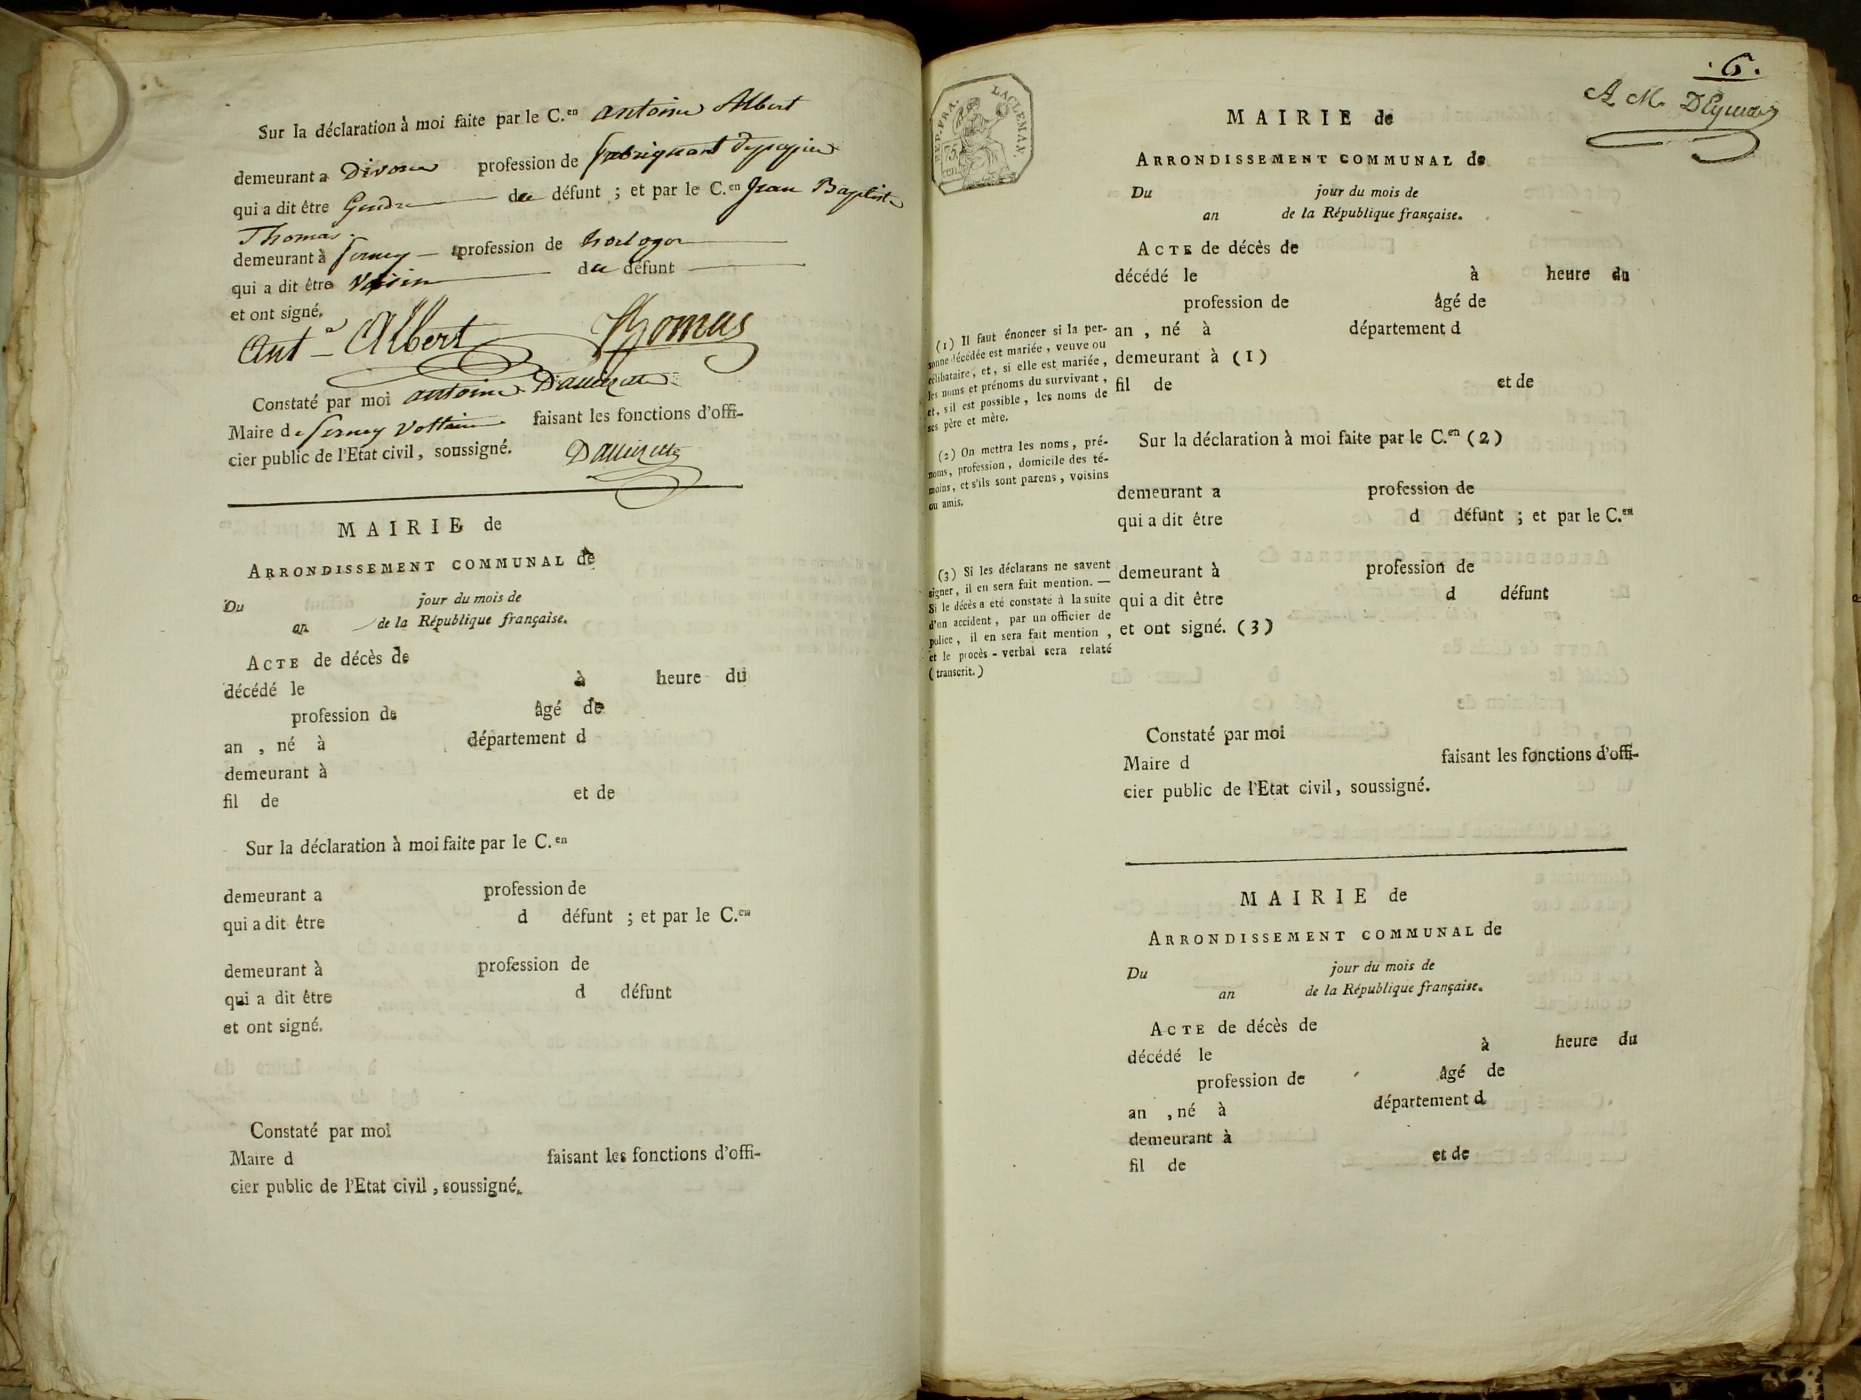 Sur la déclaration à moi faite par le C.en antoine Albert
demeurant a Divonne profession de fabriquant de papier
qui a dit être Gendre du défunt ; et par le C.en Jean Baptiste
Thomas
demeurant à ferney profession de horloger
qui a dit être Voisin du défunt
et ont signé.
Ant.e Albert Thomas
Constaté par moi antoine
Maire de ferney Voltaire faisant les fonctions d'offi-
cier public de l'Etat civil, soussigné.
MAIRIE de
ARRONDISSEMENT COMMUNAL de
Du jour du mois de
an de la République française.
ACTE de décès de
décédé le à heure du
profession de âgé de
an , né à département d
demeurant à
fil de et de
Sur la déclaration à moi faite par le C.en
demeurant a profession de
qui a dit être d défunt ; et par le C.en
demeurant à profession de
qui a dit être d défunt
et ont signé.
Constaté par moi
Maire d faisant les fonctions d'offi-
cier public de l'Etat civil, soussigné.
.6.
A. M.
REP. FRA.
75
cen
MAIRIE de
ARRONDISSEMENT COMMUNAL de
Du jour du mois de
an de la République française.
ACTE de décès de
décédé le à heure du
profession de âgé de
an , né à département d
demeurant à (1)
fil de et de
(1) Il faut énoncer si la per-
sonne décédée est mariée, veuve ou
célibataire, et, si elle est mariée,
les noms et prénoms du survivant,
et, s'il est possible, les noms de
ses père et mère.
Sur la déclaration à moi faite par le C.en (2)
(2) On mettra les noms, pré-
noms, profession, domicile des té-
moins, et s'ils sont parens, voisins
ou amis.
demeurant a profession de
qui a dit être d défunt ; et par le C.en
demeurant à profession de
qui a dit être d défunt
et ont signé. (3)
(3) Si les déclarans ne savent
signer, il en sera fait mention. —
Si le décès a eté constaté à la suite
d'un accident, par un officier de
police, il en sera fait mention,
et le procès-verbal sera relaté
(transcrit.)
Constaté par moi
Maire d faisant les fonctions d'offi-
cier public de l'Etat civil, soussigné.
MAIRIE de
ARRONDISSEMENT COMMUNAL de
Du jour du mois de
an de la République française.
ACTE de décès de
décédé le à heure du
profession de âgé de
an , né à département d
demeurant à
fil de et de